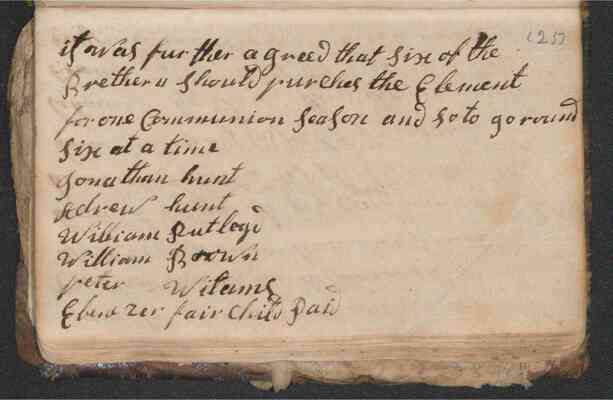 (25)
it was further agreed that six of the
Brethern should purches the Element
for one Communion Season and so to go round
six at a time
Jonathan hunt
Adrew hunt
William Rutlegd
William Brown
peter Wilams
Ebenezer fair Child Paid